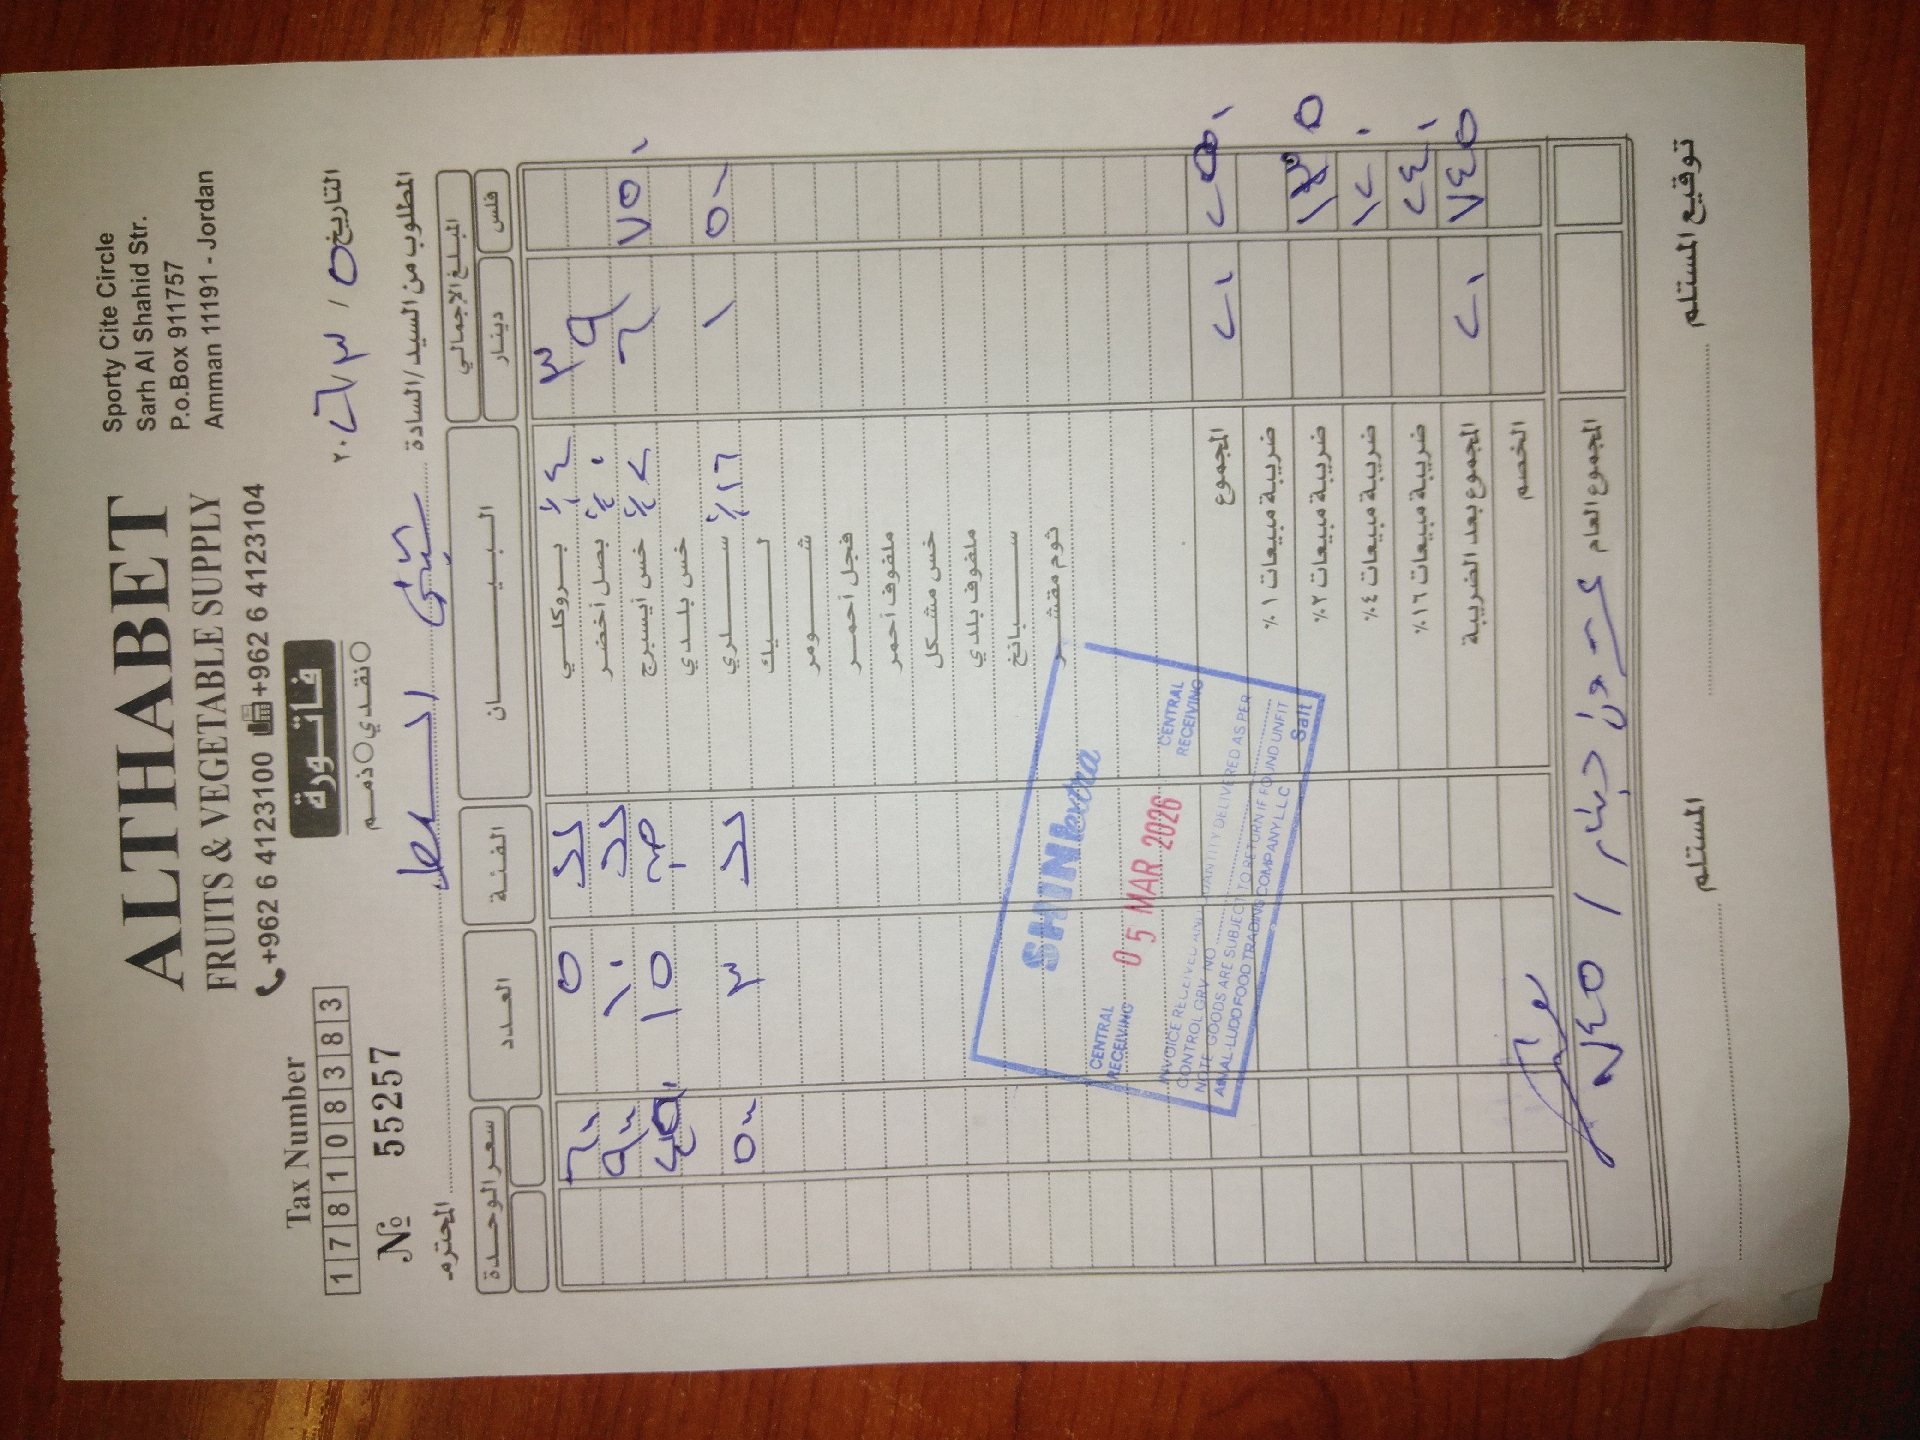 ALTHABET
FRUITS & VEGETABLE SUPPLY
+962 6 4123100 +962 6 4123104
Sporty Cite Circle
Sarh Al Shahid Str.
P.o.Box 911757
Amman 11191 - Jordan
Tax Number
1 7 8 1 0 8 3 8 3
№ 55257
فاتورة
نقدي ذمم
التاريخ ٥ / ٣ / ٢٠٢٦
المطلوب من السيد/السادة السلط المحترم
المبلغ الإجمالي البيــــان الفئة العدد سعر الوحدة
فلس دينار
٣ بروكلي ٤٪ ٥ ٦٠٠
٩ بصل أخضر ١٠ ٩٠٠
٧٥٠ ٦ خس أيسبرج ٢٪ ١٥ ٤٥٠
خس بلدي
٥٠٠ ١ سلري ١٦٪ ٣ ٥٠٠
ليك
شومر
فجل أحمر
ملفوف أحمر
خس مشكل
ملفوف بلدي
سبانخ
ثوم مقشر
SHINextra
CENTRAL RECEIVING
05 MAR 2026
CENTRAL RECEIVING
INVOICE RECEIVED AND QUANTITY DELIVERED AS PER
CONTROL GRV NO
NOTE GOODS ARE SUBJECT TO RETURN IF FOUND UNFIT
FOOD TRADING COMPANY L.L.C Salt
المجموع ٢٥٠ ٢٠
ضريبة مبيعات ١٪
ضريبة مبيعات ٢٪ ١٣٥
ضريبة مبيعات ٤٪ ١٢٠
ضريبة مبيعات ١٦٪ ٢٤٠
المجموع بعد الضريبة ٧٤٥ ٢٠
الخصم
المجموع العام عشرون دينار / ٧٤٥
توقيع المستلم
المستلم